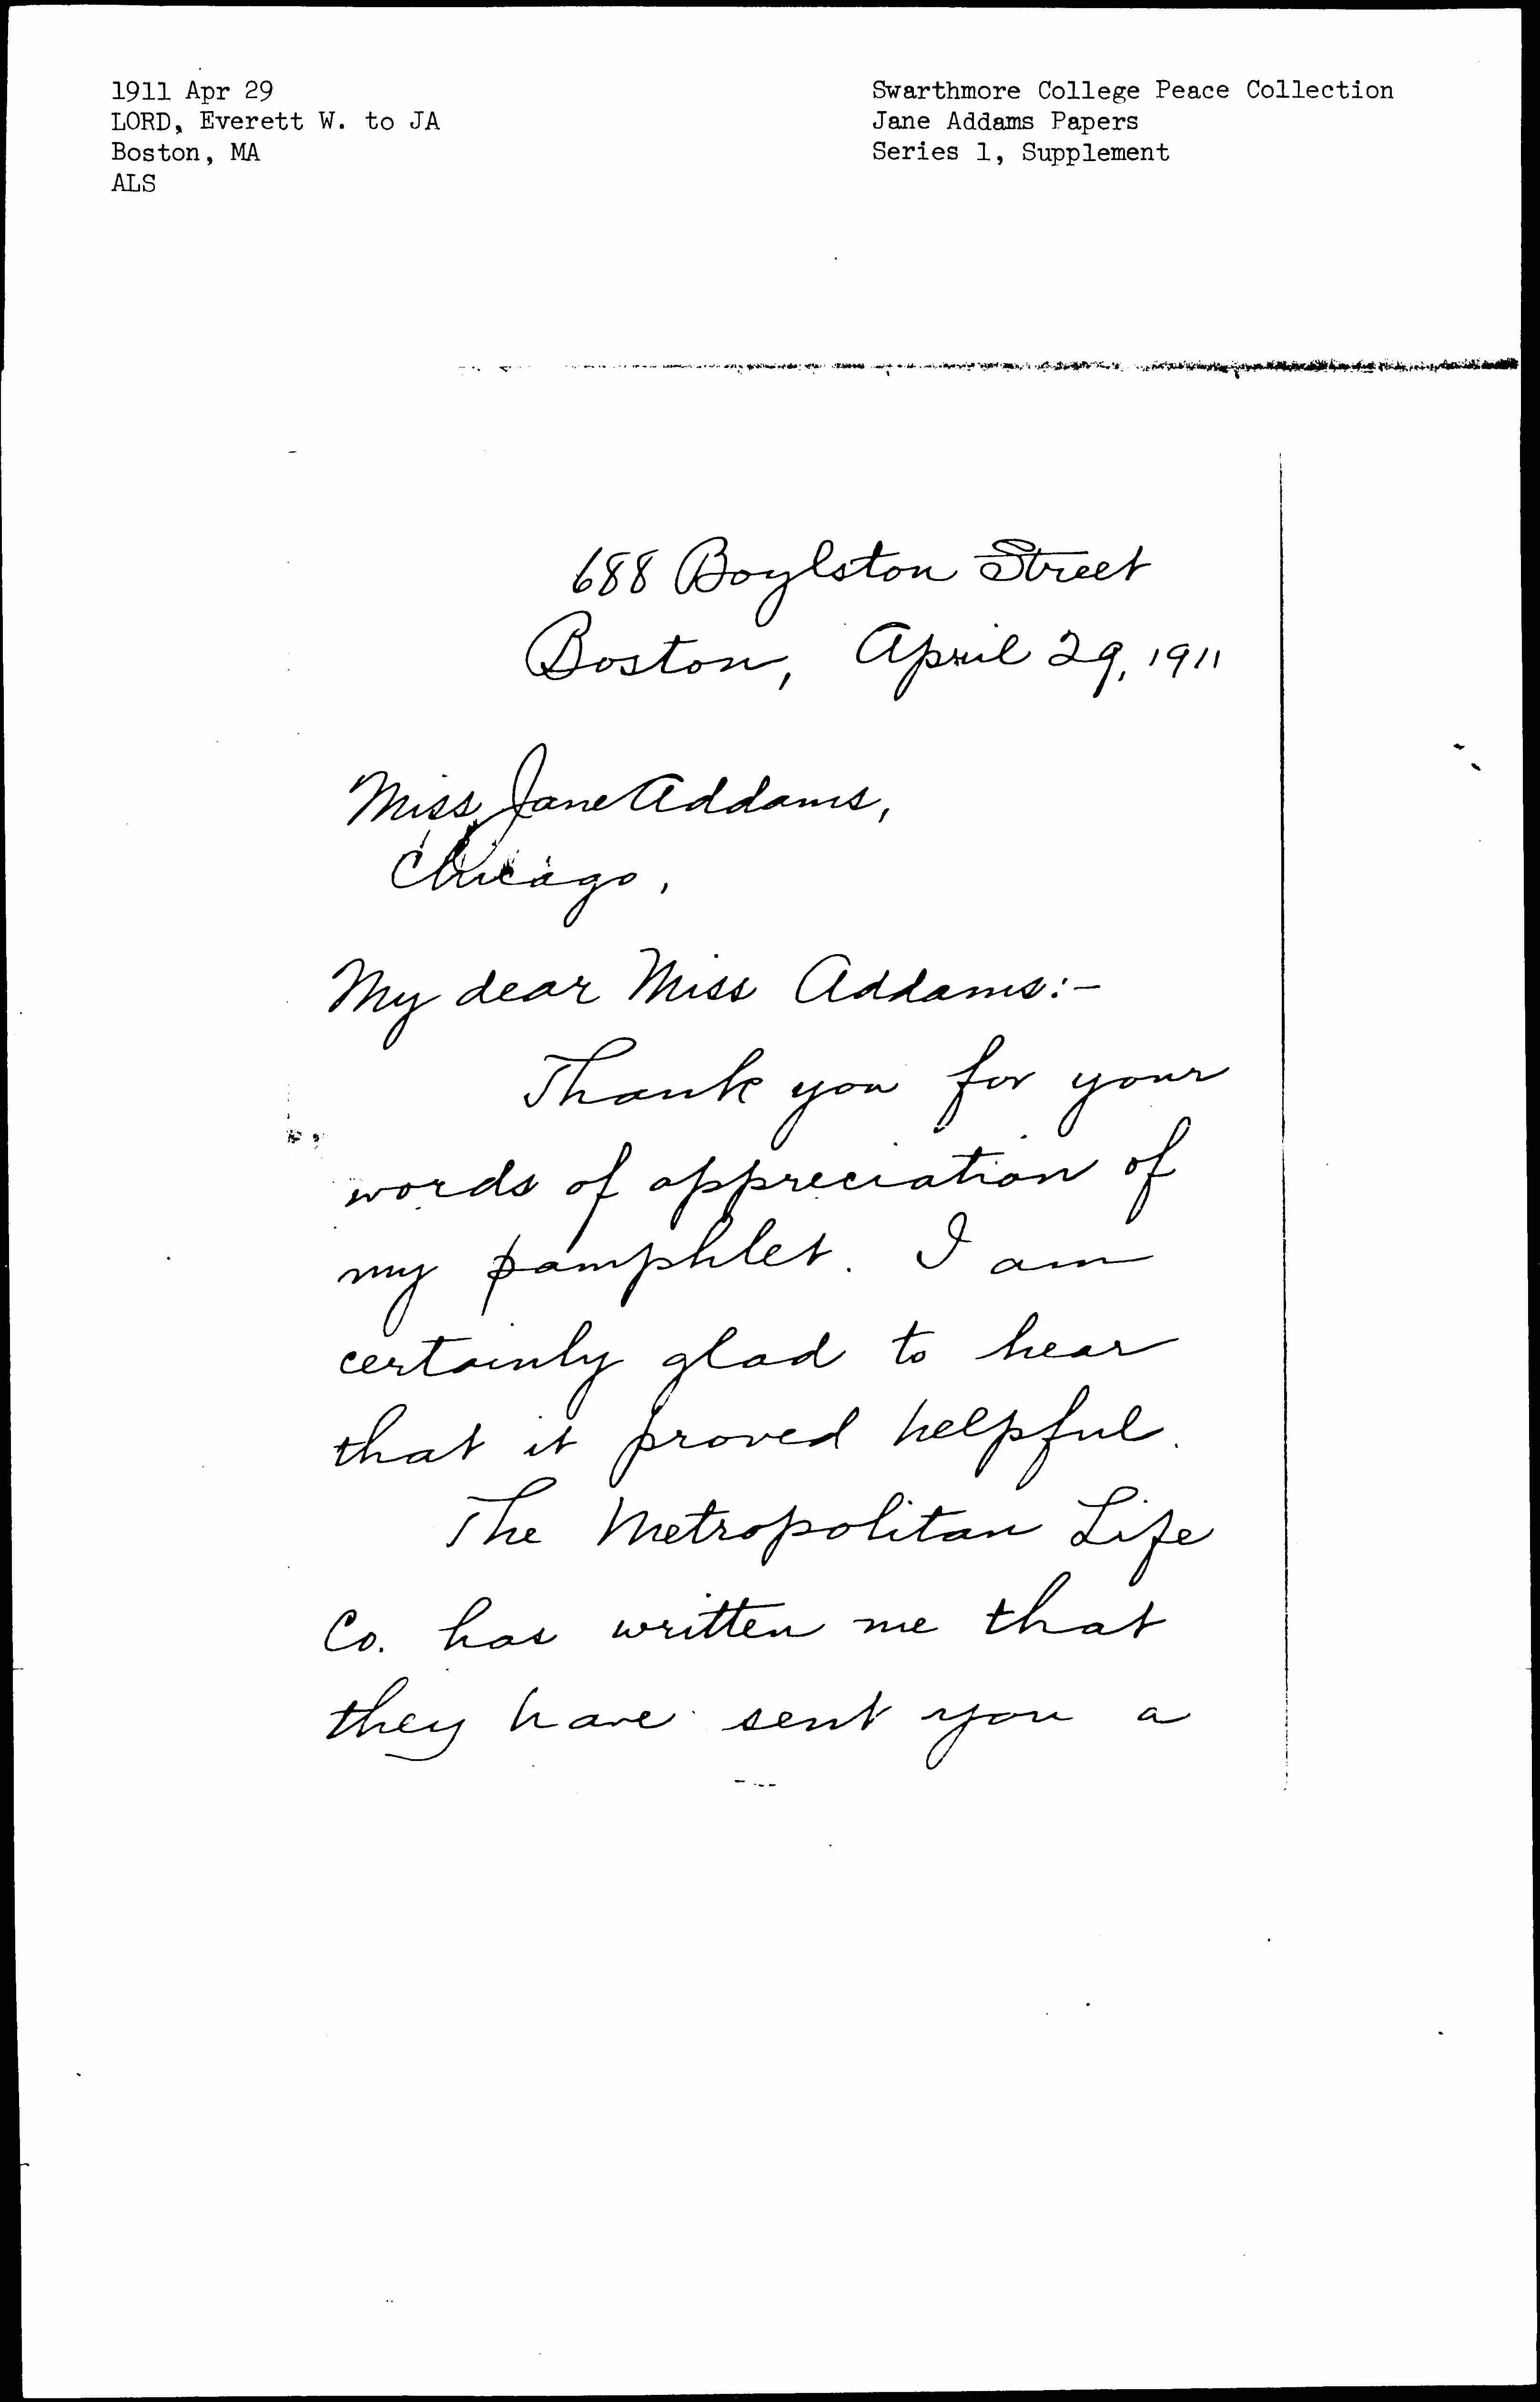 1911 Apr 29
LORD, Everett W. to JA
Boston, MA
ALS
Swarthmore College Peace Collection
Jane Addams Papers
Series 1, Supplement
688 Boylston Street
Boston, April 29, 1911
Miss Jane Addams,
Chicago,
My dear Miss Addams:-
Thank you for your
words of appreciation of
my pamphlet. I am
certainly glad to hear
that it proved helpful.
The Metropolitan Life
Co. has written me that
they have sent you a